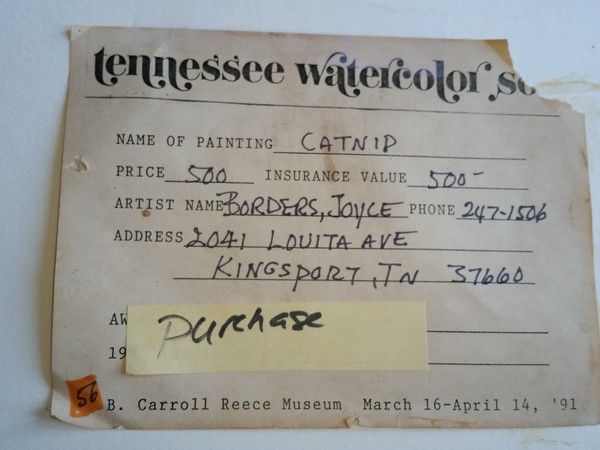 tennessee watercolor so
NAME OF PAINTING CATNIP
PRICE 500 INSURANCE VALUE 500-
ARTIST NAME BORDERS, JOYCE PHONE 247-1506
ADDRESS 2041 LOUITA AVE
KINGSPORT, TN 37660
AW
Purchase
19
56
B. Carroll Reece Museum March 16-April 14, '91